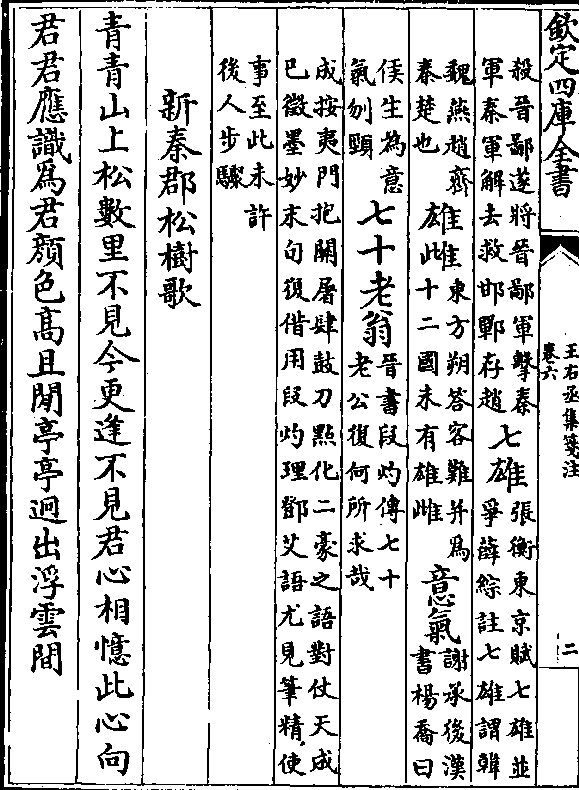 欽定四庫全書
王右丞集箋注
卷六
二
殺晉鄙遂將晉鄙軍擊秦
軍秦軍解去救邯鄲存趙
七雄
張衡東京賦七雄並
爭薛綜註七雄謂韓
魏燕趙齊
秦楚也
雄雌
東方朔答客難并為
十二國未有雄雌
意氣
謝承後漢
書楊喬曰
侯生為意
氣刎頸
七十老翁
晉書段灼傳七十
老公復何所求哉
成按夷門抱關屠肆鼓刀點化二豪之語對仗天成
已徵墨妙末句復借用段灼理鄧艾語尤見筆精使
事至此未許
後人步驟
新秦郡松樹歌
青青山上松數里不見今更逢不見君心相憶此心向
君君應識為君顏色高且閒亭亭迥出浮雲間